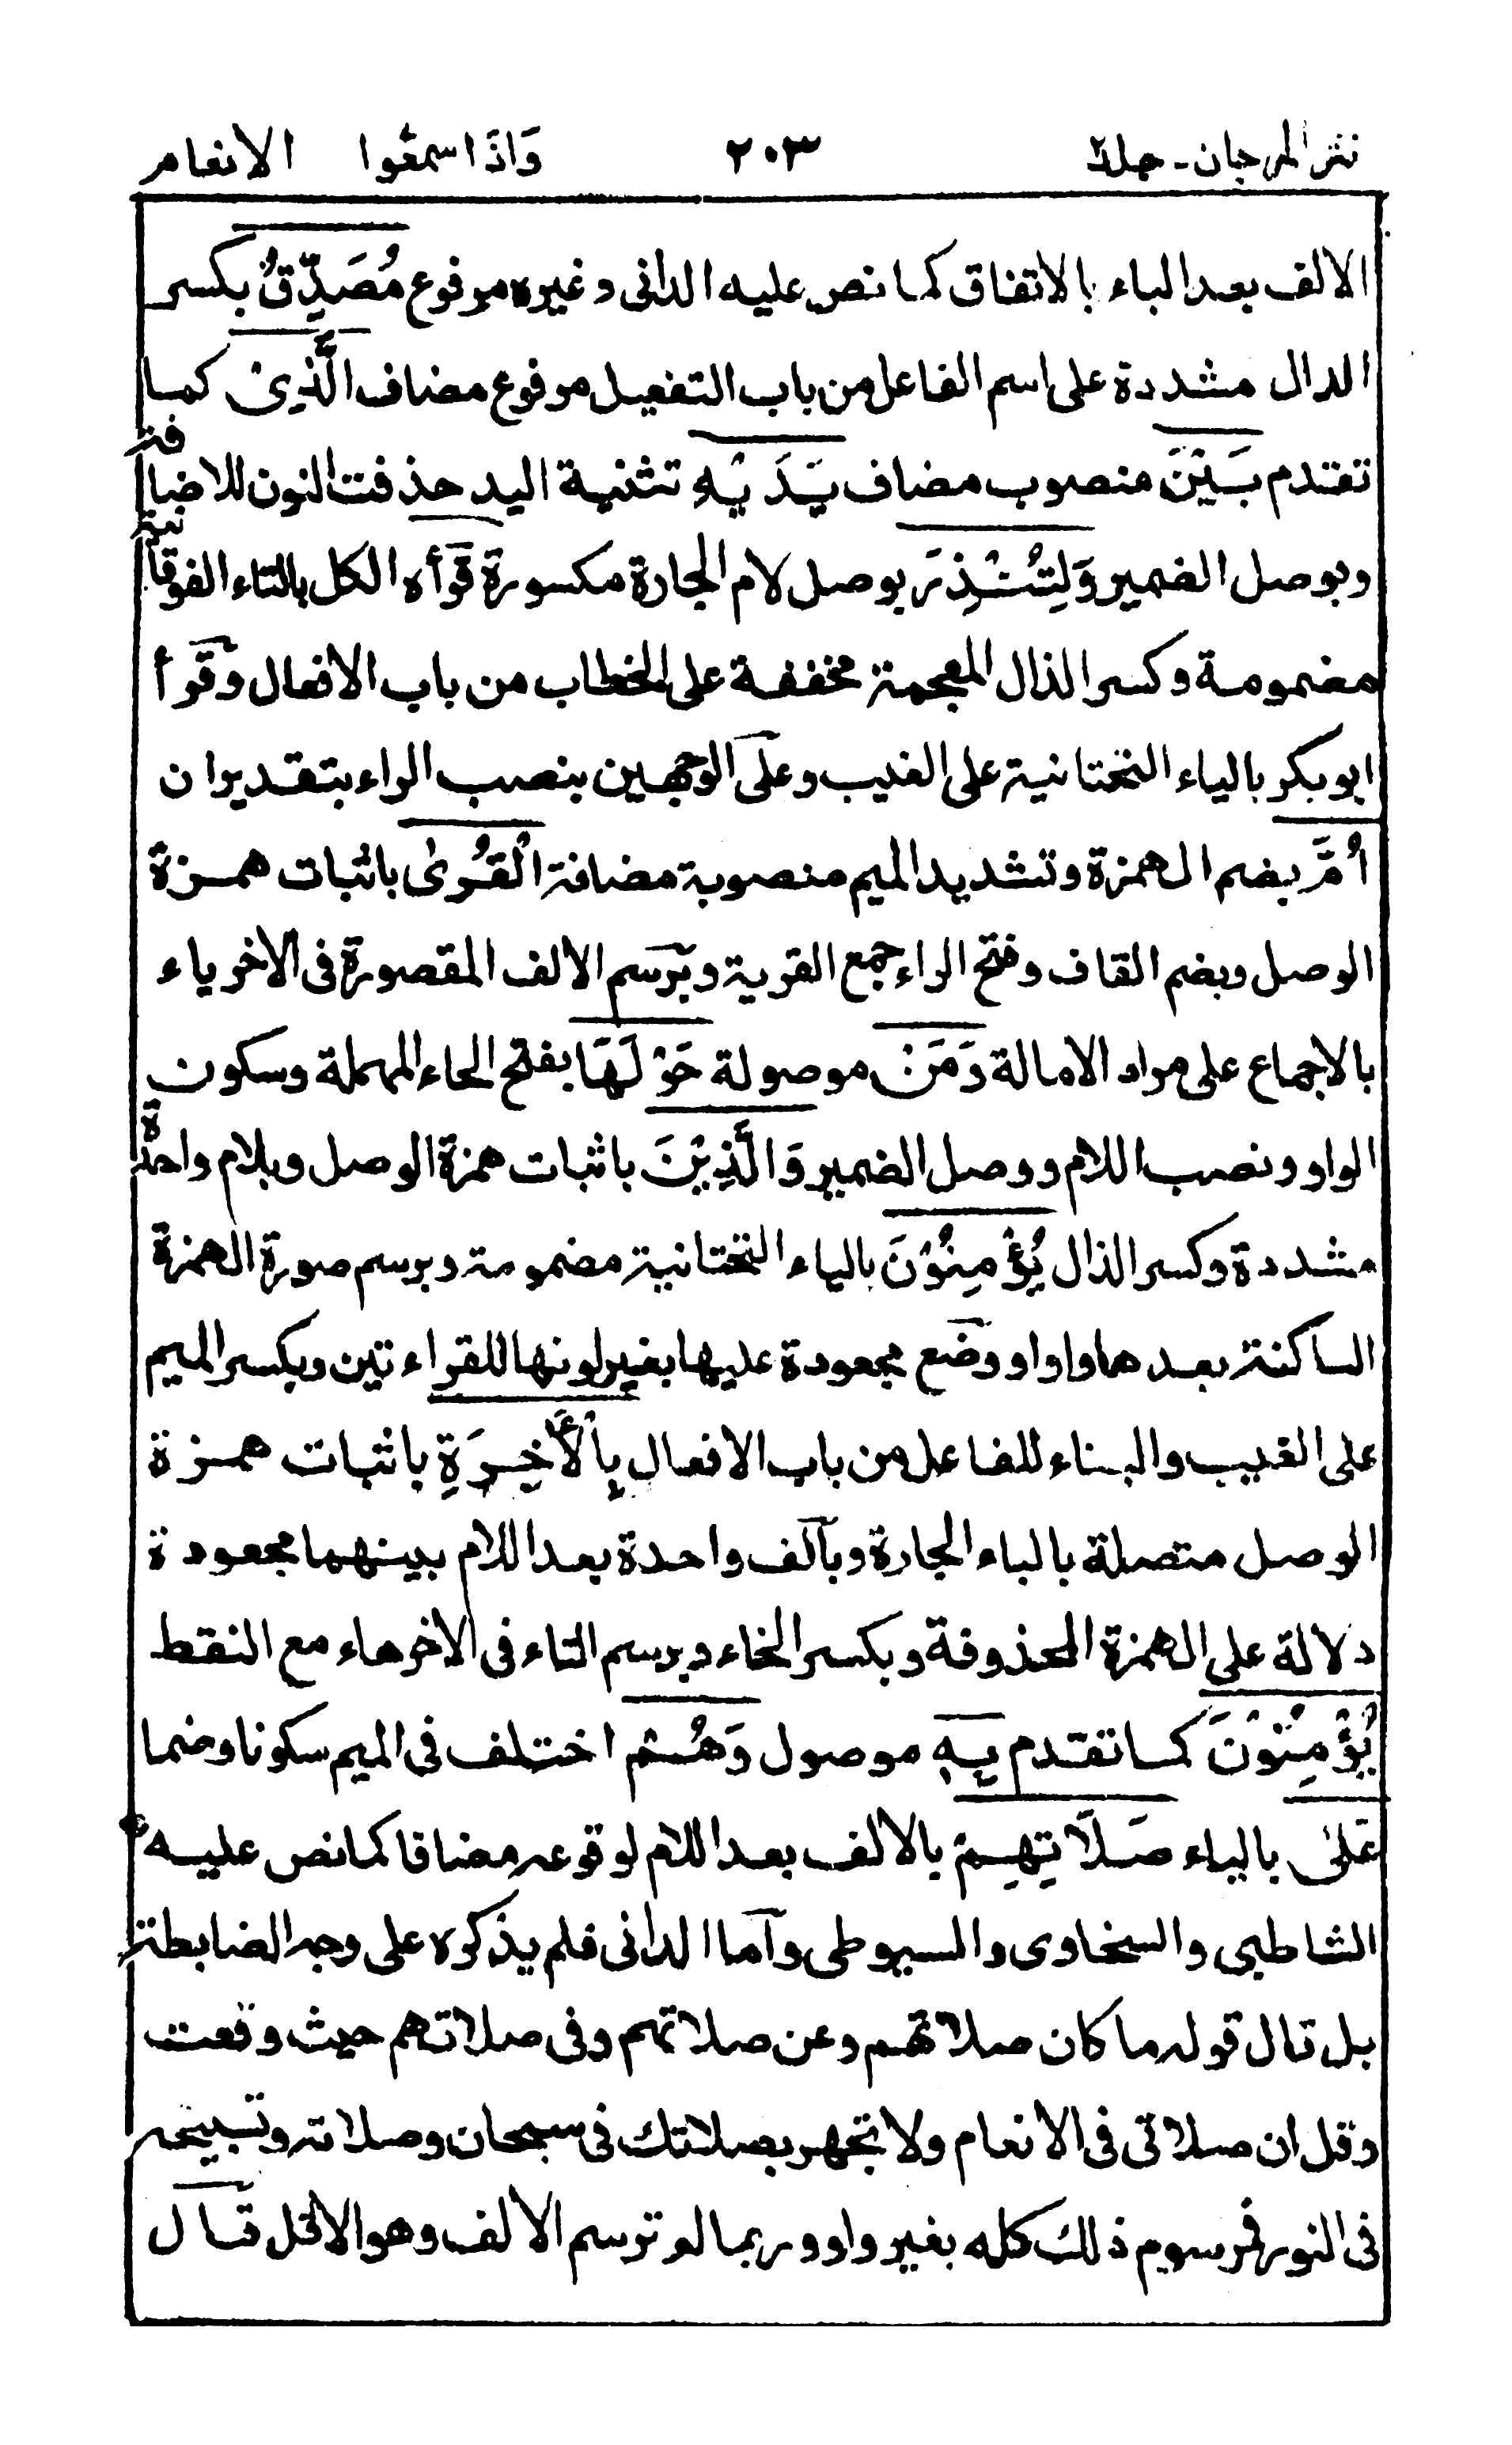 نثر المرجان - جلد٢ ٢٠٣ وَاِذَا سمعُوا الانعام
الالف بعد الباء بالاتفاق كما نص عليه الدانى وغيره مرفوع مُصَدِّقُ بكسر
الدال مشددة على اسم الفاعل من باب التفعيل مرفوع مضاف الَّذِىْ كما
تقدم بَيْنَ منصوب مضاف يَدَيْهِ تثنية اليد حذفت النون للاضافة
وبوصل الضمير وَلِتُنْذِرَ بوصل لام الجارة مكسورة قرأه الكل بالتاء الفوقانية
مضمومة وكسر الذال المعجمة مخففة على الخطاب من باب الافعال وقرأ
ابوبكر بالياء التختانية على الغيب وعلى الوجهين بنصب الراء بتقدير ان
اُمَّ بضم الهمزة وتشديد الميم منصوبة مضافة الْقُرٰى باثبات همزة
الوصل وبضم القاف وفتح الراء جمع القرية وبرسم الالف المقصورة فى الاخر ياء
بالاجماع على مراد الامالة وَمَنْ موصولة حَوْلَهَا بفتح الحاء المهملة وسكون
الواو ونصب اللام ووصل الضمير وَالَّذِيْنَ باثبات همزة الوصل وبلام واحدة
مشددة وكسر الذال يُؤْمِنُوْنَ بالياء التختانية مضمومة وبرسم صورة الهمزة
الساكنة بعدها واوا ووضع مجعودة عليها بغير لونها للقراءتين وبكسر الميم
على الغيب والبناء للفاعل من باب الافعال بِالْاٰخِرَةِ باثبات همزة
الوصل متصلة بالباء الجارة وبالف واحدة بعد اللام بينهما مجعودة
دلالة على الهمزة المحذوفة وبكسر الخاء وبرسم التاء فى الاخر هاء مع النقط
يُؤْمِنُوْنَ كما تقدم بِهٖ موصول وَهُمْ اختلف فى الميم سكونا وضما
عَلٰى بالياء صَلَاتِهِمْ بالالف بعد اللام لوقوعه مضافا كما نص عليه
الشاطبى والسخاوى والسيوطى واما الدانى فلم يذكره على وجه الضابطة
بل قال قوله ما كان صلاتهم وعن صلاتهم وفى صلاتهم حيث وقعت
وقل ان صلاتى فى الانعام ولا تجهر بصلاتك فى سبحان وصلاته وتسبيحه
فى النور فمرسوم ذلك كله بغير واو وربما لم ترسم الالف وهو الاقل قال